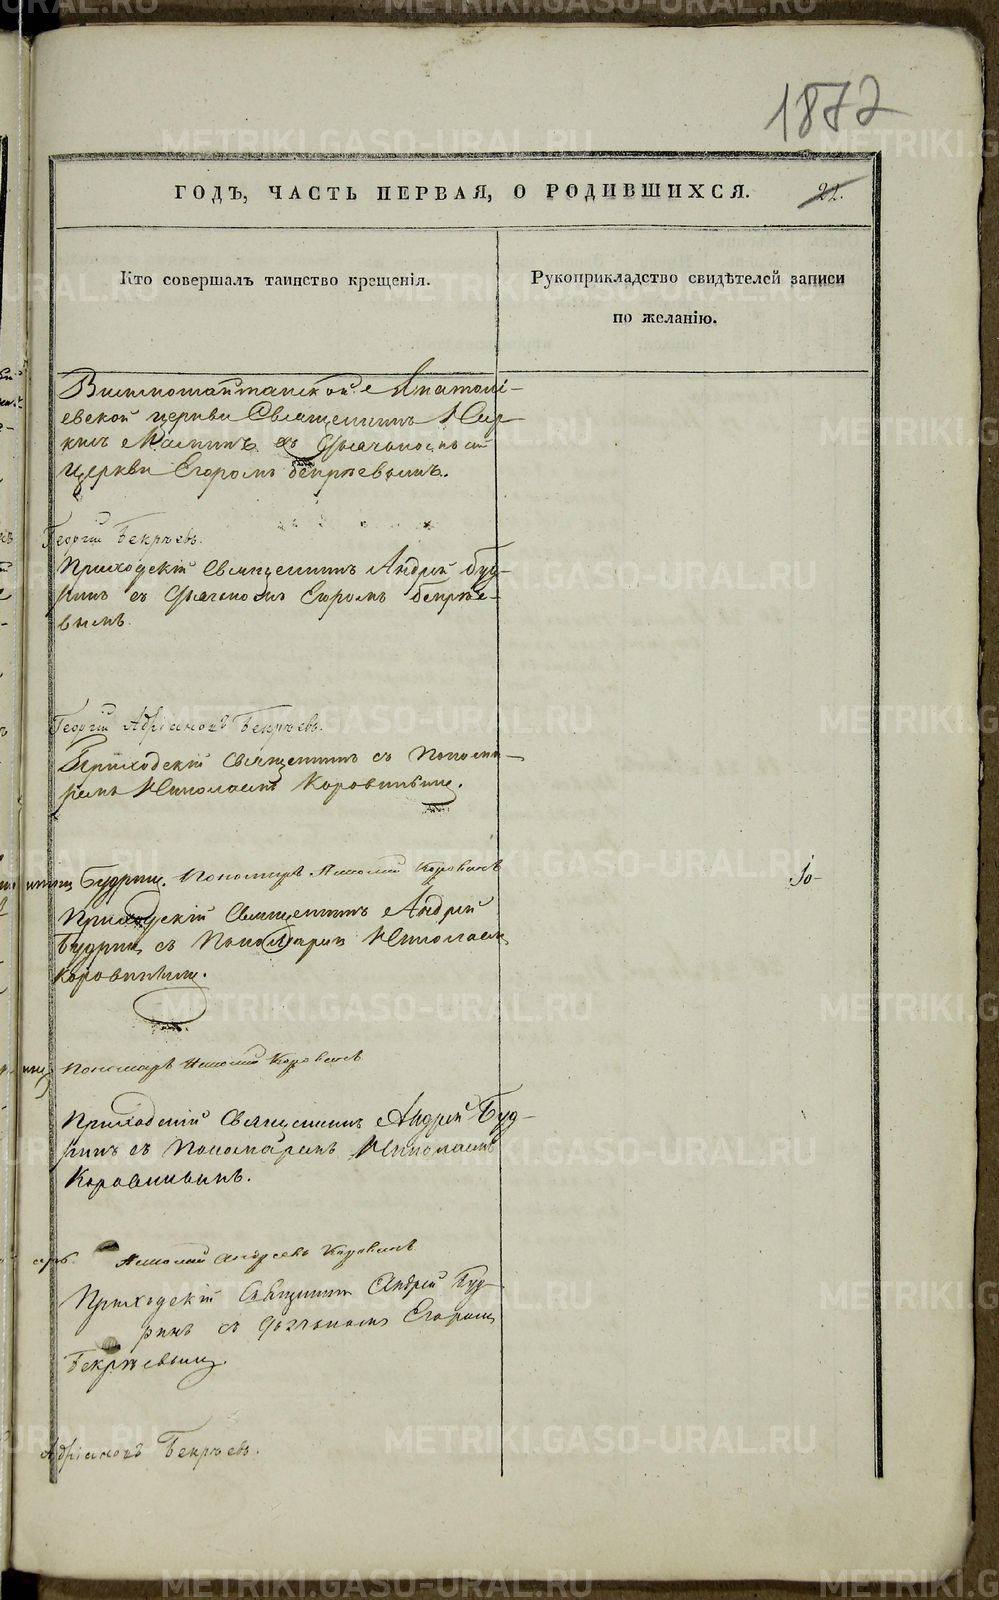 1872
ГОДЪ, ЧАСТЬ ПЕРВАЯ, О РОДИВШИХСЯ. 22.
Кто совершалъ таинство крещенія.
Рукоприкладство свидѣтелей записи
по желанію.
евской церкви Священникъ
церкви Егоромъ Бекрѣевымъ.
Георгій Бекрѣевъ.
Приходскій Священникъ Андрей Буд-
ринъ съ Дьячкомъ Егоромъ Бекрѣе-
вымъ.
Георгій Адріановъ Бекрѣевъ.
Приходскій Священникъ съ Понома-
ремъ Николаемъ Коровинымъ.
Будринъ. Пономарь Николай Коровинъ
Приходскій Священникъ Андрей
Будринъ съ Пономаремъ Николаемъ
Коровинымъ.
Пономарь Николай Коровинъ
Приходскій Священникъ Андрей Буд-
ринъ съ Пономаремъ Николаемъ
Коровинымъ.
арь. Николай Андреевъ Коровинъ
Приходскій Священникъ Андрей Буд-
ринъ съ Дьячкомъ Егоромъ
Бекрѣевымъ.
Адріановъ Бекрѣевъ.
METRIKI.GASO-URAL.RU